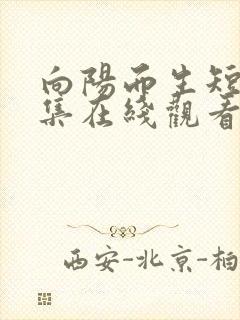 向陽而生短
集在綫觀看
西安-北京-柏